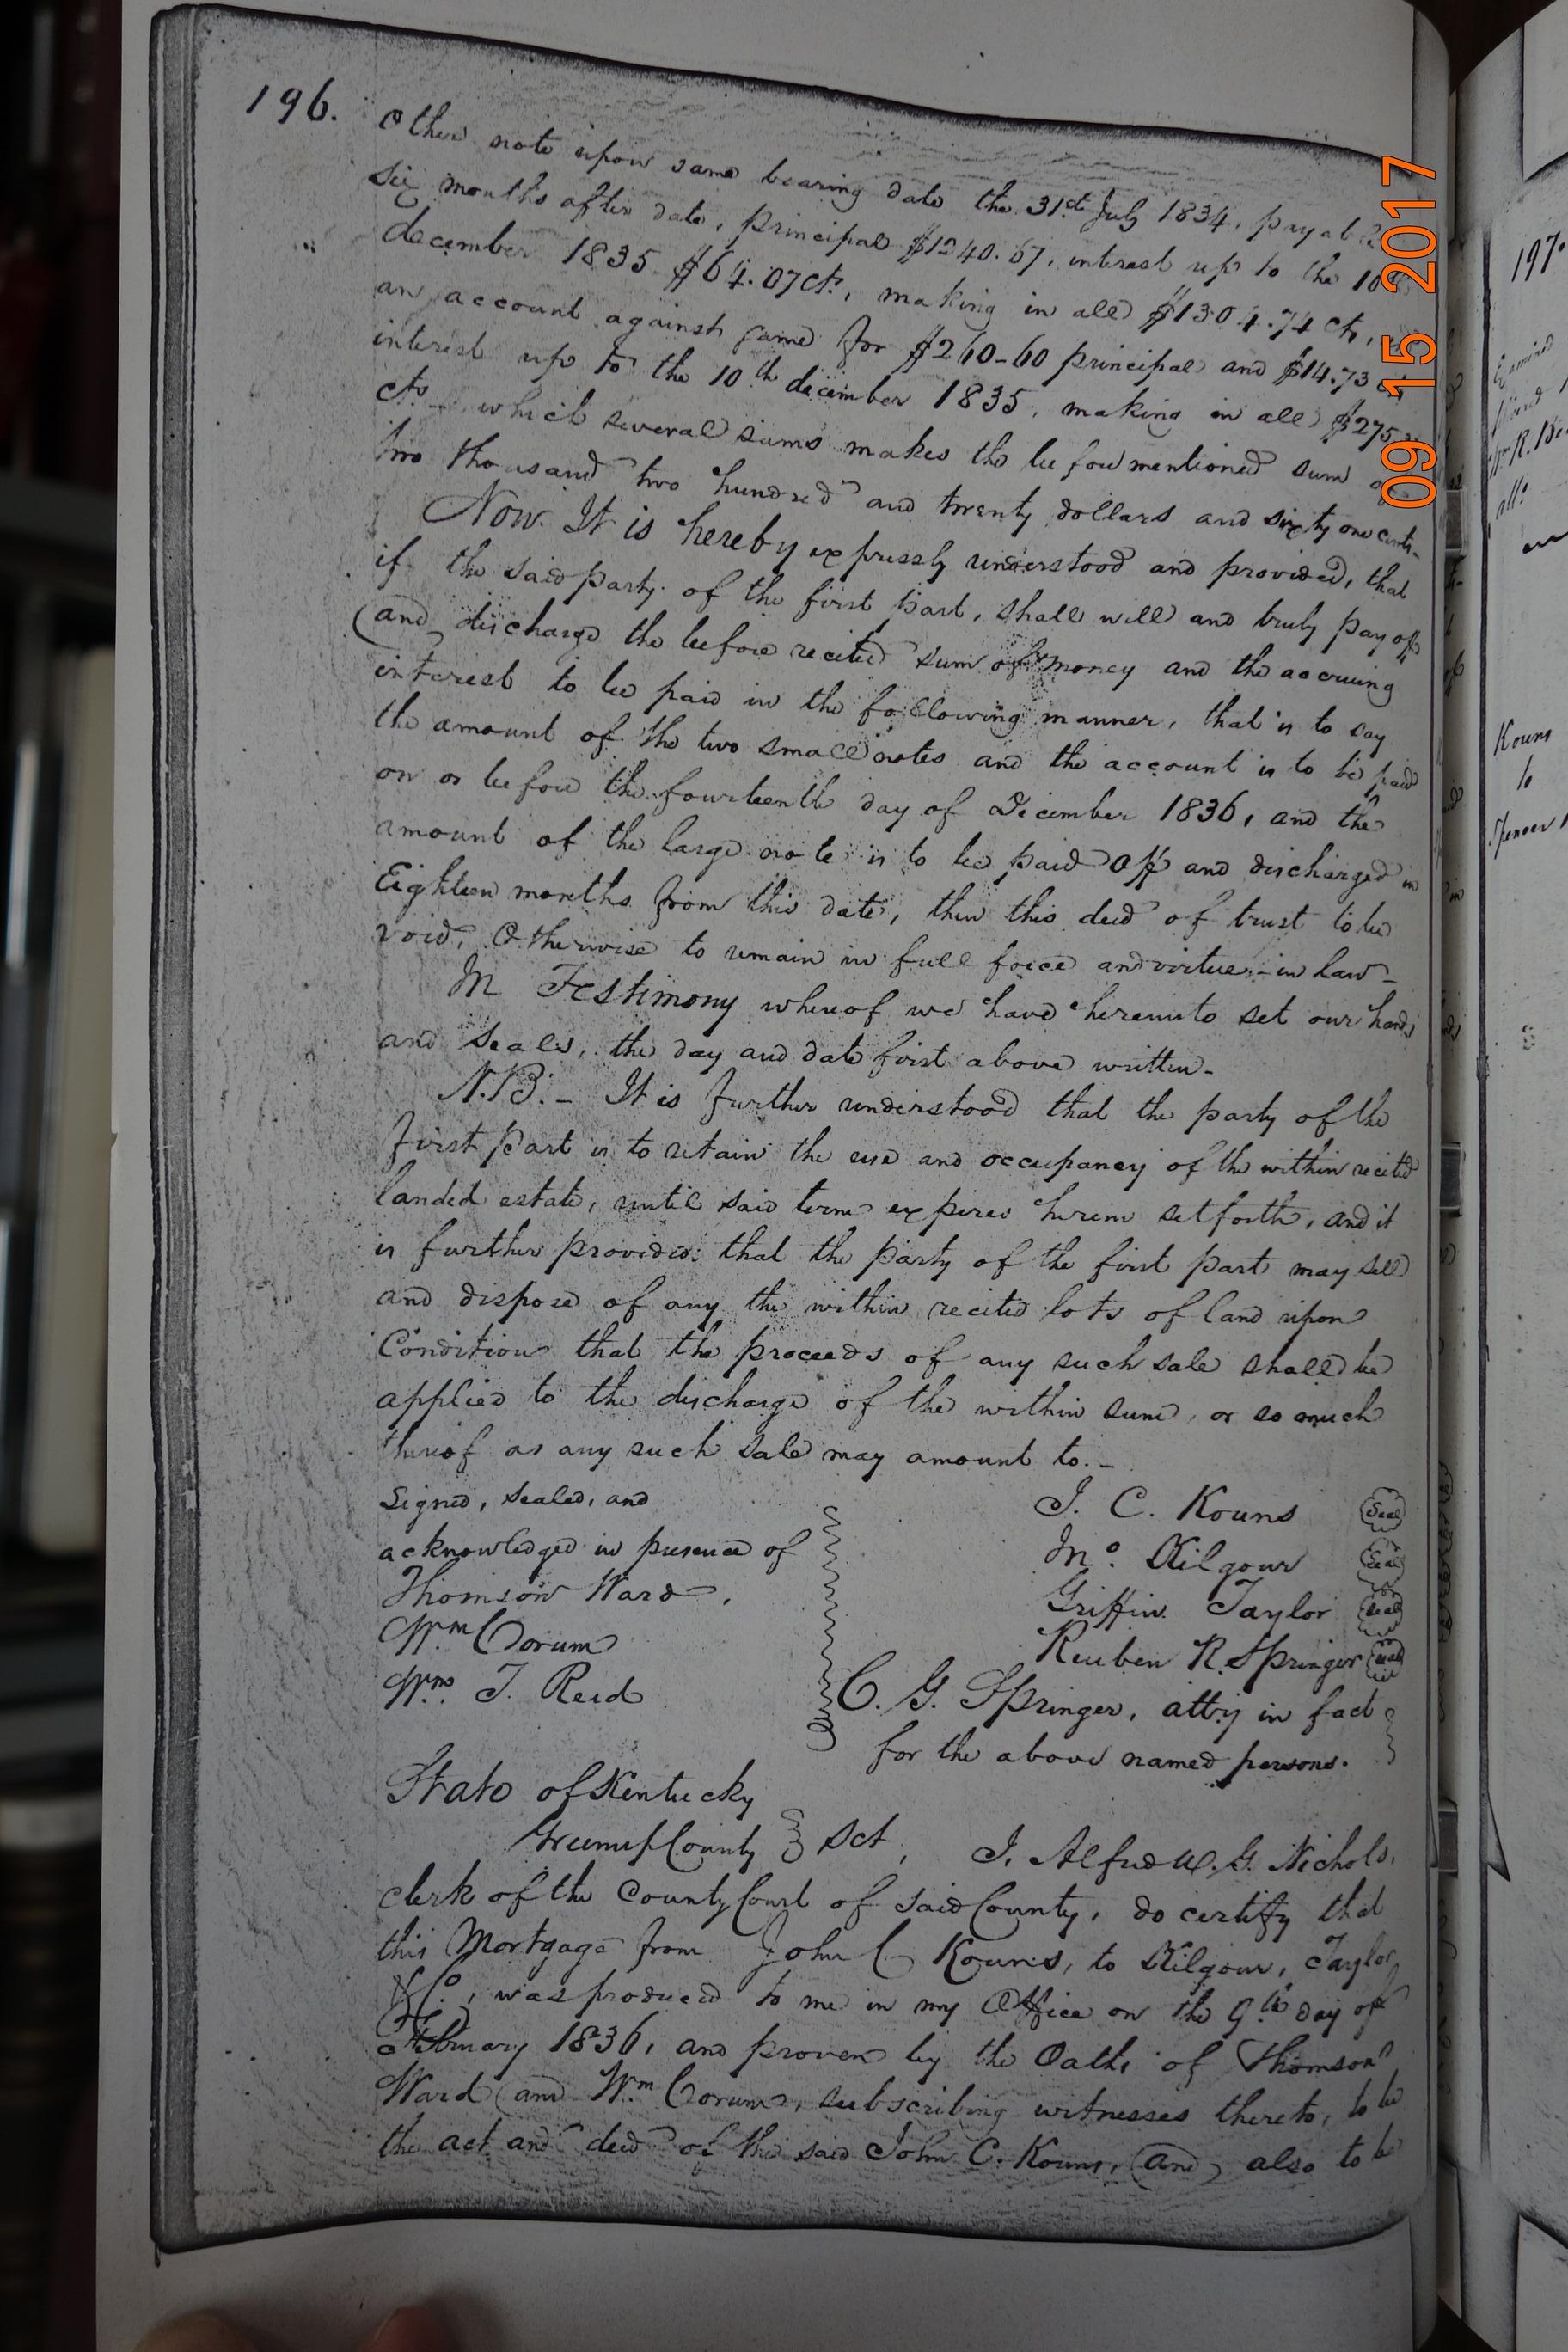 196.
Other note upon same bearing date the 31st July 1834, payable
six months after date, principal $1240.67, interest up to the 10th
december 1835 $64.07 cts, making in all $1304.74 cts,
an account against same for $260-60 principal and $14.73
interest up to the 10th december 1835, making in all $275
cts - which several sums makes the before mentioned sum of
two thousand two hundred and twenty dollars and sixty one cents-
Now It is hereby expressly understood and provided, that
if the said party of the first part, shall will and truly pay off
(and discharge the before recited sum of money and the accruing
interest to be paid in the following manner, that is to say
the amount of the two small notes and the account is to be paid
on or before the fourteenth day of December 1836, and the
amount of the large note is to be paid off and discharged in
Eighteen months from this date, then this deed of trust to be
void, Otherwise to remain in full force and virtue - in law -
In Testimony whereof we have hereunto set our hands
and Seals, the day and date first above written -
N.B. - It is further understood that the party of the
first part is to retain the use and occupancy of the within recited
landed estate, until said term expires herein set forth, and it
is further provided that the party of the first part may sell
and dispose of any the within recited lots of land upon
Condition that the proceeds of any such sale shall be
applied to the discharge of the within sum, or so much
thereof as any such sale may amount to. -
Signed, sealed, and
acknowledged in presence of
Thomson Ward,
Wm Corum
Wm. T. Reid
J. C. Kouns Seal
Jno. Kilgour Seal
Griffin Taylor Seal
Reuben R. Springer Seal
C. G. Springer, atty in fact
for the above named persons.
State of Kentucky
Greenup County } Sct, I, Alfred W. G. Nichols,
clerk of the County Court of said County, do certify that
this Mortgage from John C Kouns, to Kilgour, Taylor
& Co, was produced to me in my Office on the 9th day of
February 1836, and proven by the Oaths of Thomson
Ward and Wm Corum, subscribing witnesses thereto, to be
the act and deed of the said John C. Kouns, (and) also to be
09 15 2017
197.
Examined
Wm R.
Kouns
to